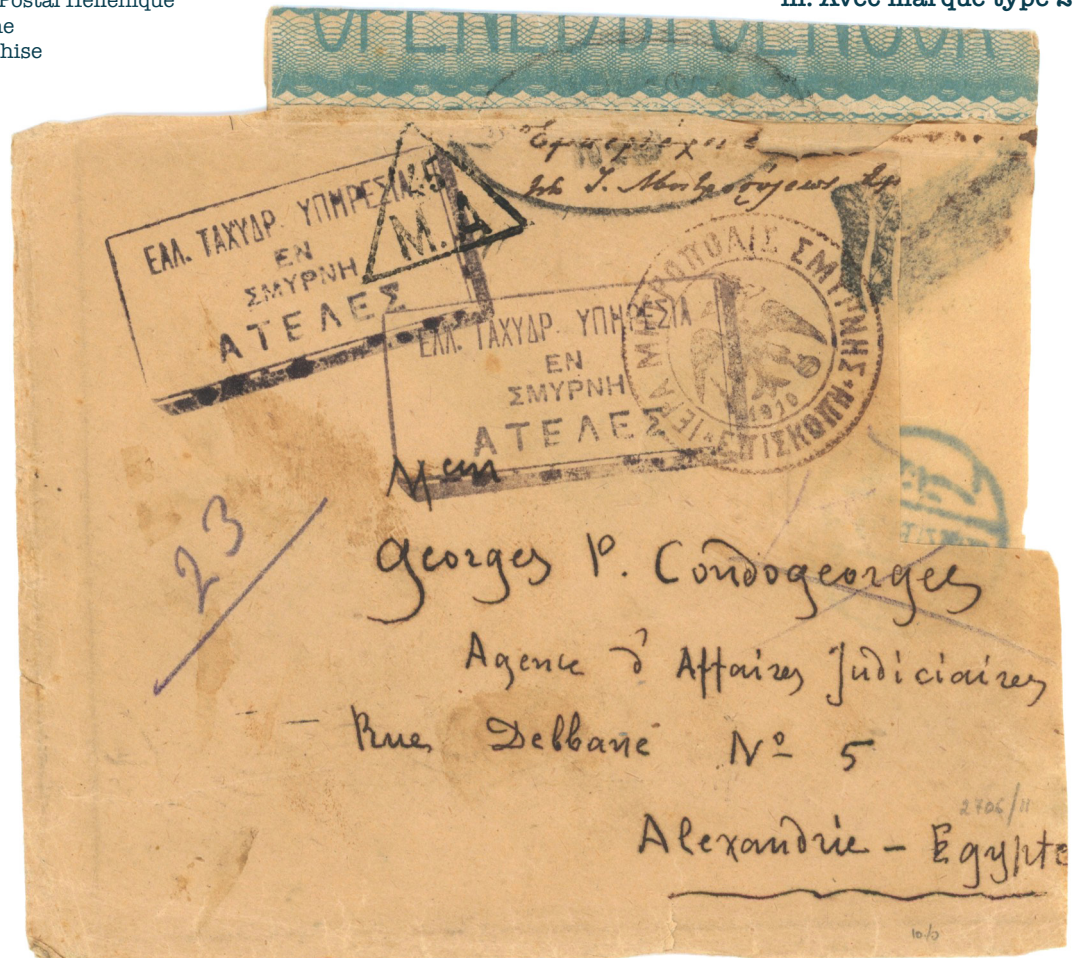 Postal Hellénique
hise
m. Avec marque type 2
OPENED BY CENSOR
ΕΛΛ. ΤΑΧΥΔΡ. ΥΠΗΡΕΣΙΑ
ΕΝ
ΣΜΥΡΝΗ
ΑΤΕΛΕΣ
45
M. A
ΕΛΛ. ΤΑΧΥΔΡ. ΥΠΗΡΕΣΙΑ
ΕΝ
ΣΜΥΡΝΗ
ΑΤΕΛΕΣ
ΙΕΡΑ ΜΗΤΡΟΠΟΛΙΣ ΣΜΥΡΝΗΣ
ΕΠΙΣΚΟΠΗ
1910
23
Georges P. Condogeorges
Agence d'Affaires Judiciaires
Rue Debbané Nº 5
Alexandrie - Egypte
2706/11